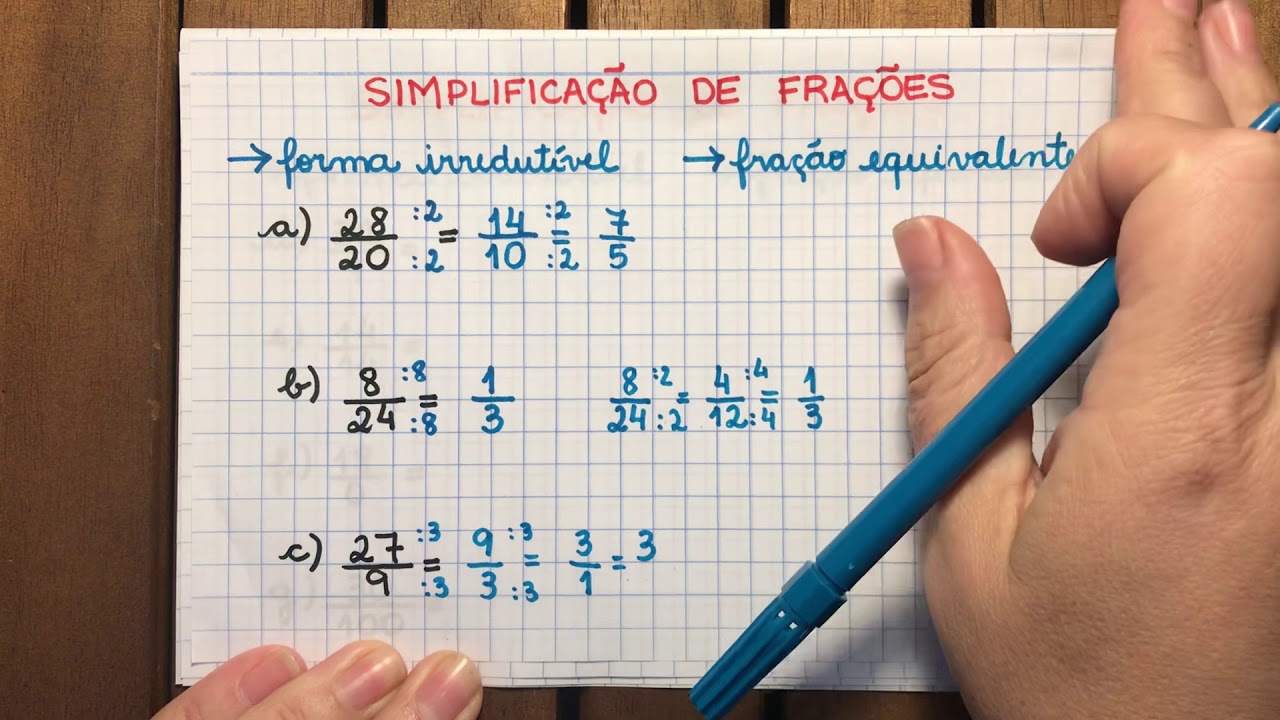 SIMPLIFICAÇÃO DE FRAÇÕES
→ forma irredutível → fração equivalente
a) 28/20 :2/:2 = 14/10 :2/:2 = 7/5
b) 8/24 :8/:8 = 1/3 8/24 :2/:2 = 4/12 :4/:4 = 1/3
c) 27/9 :3/:3 = 9/3 :3/:3 = 3/1 = 3